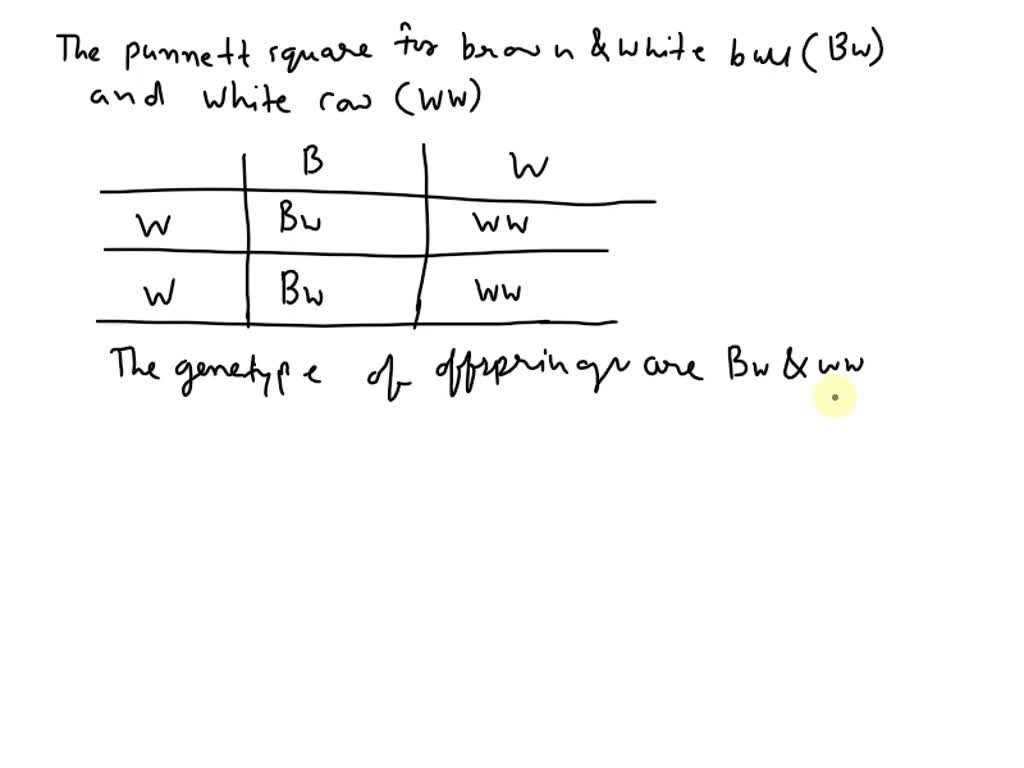 The punnett square for brown & white bull (Bw)
and white cow (WW)
B W
W Bw WW
W Bw WW
The genotype of offsprings are Bw & ww